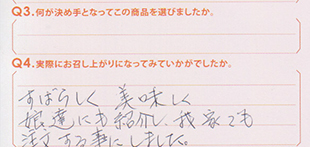 Q3.何が決め手となってこの商品を選びましたか。
Q4.実際にお召し上がりになってみていかがでしたか。
すばらしく 美味しく
娘達にも紹介し、我家でも
注文する事にしました。